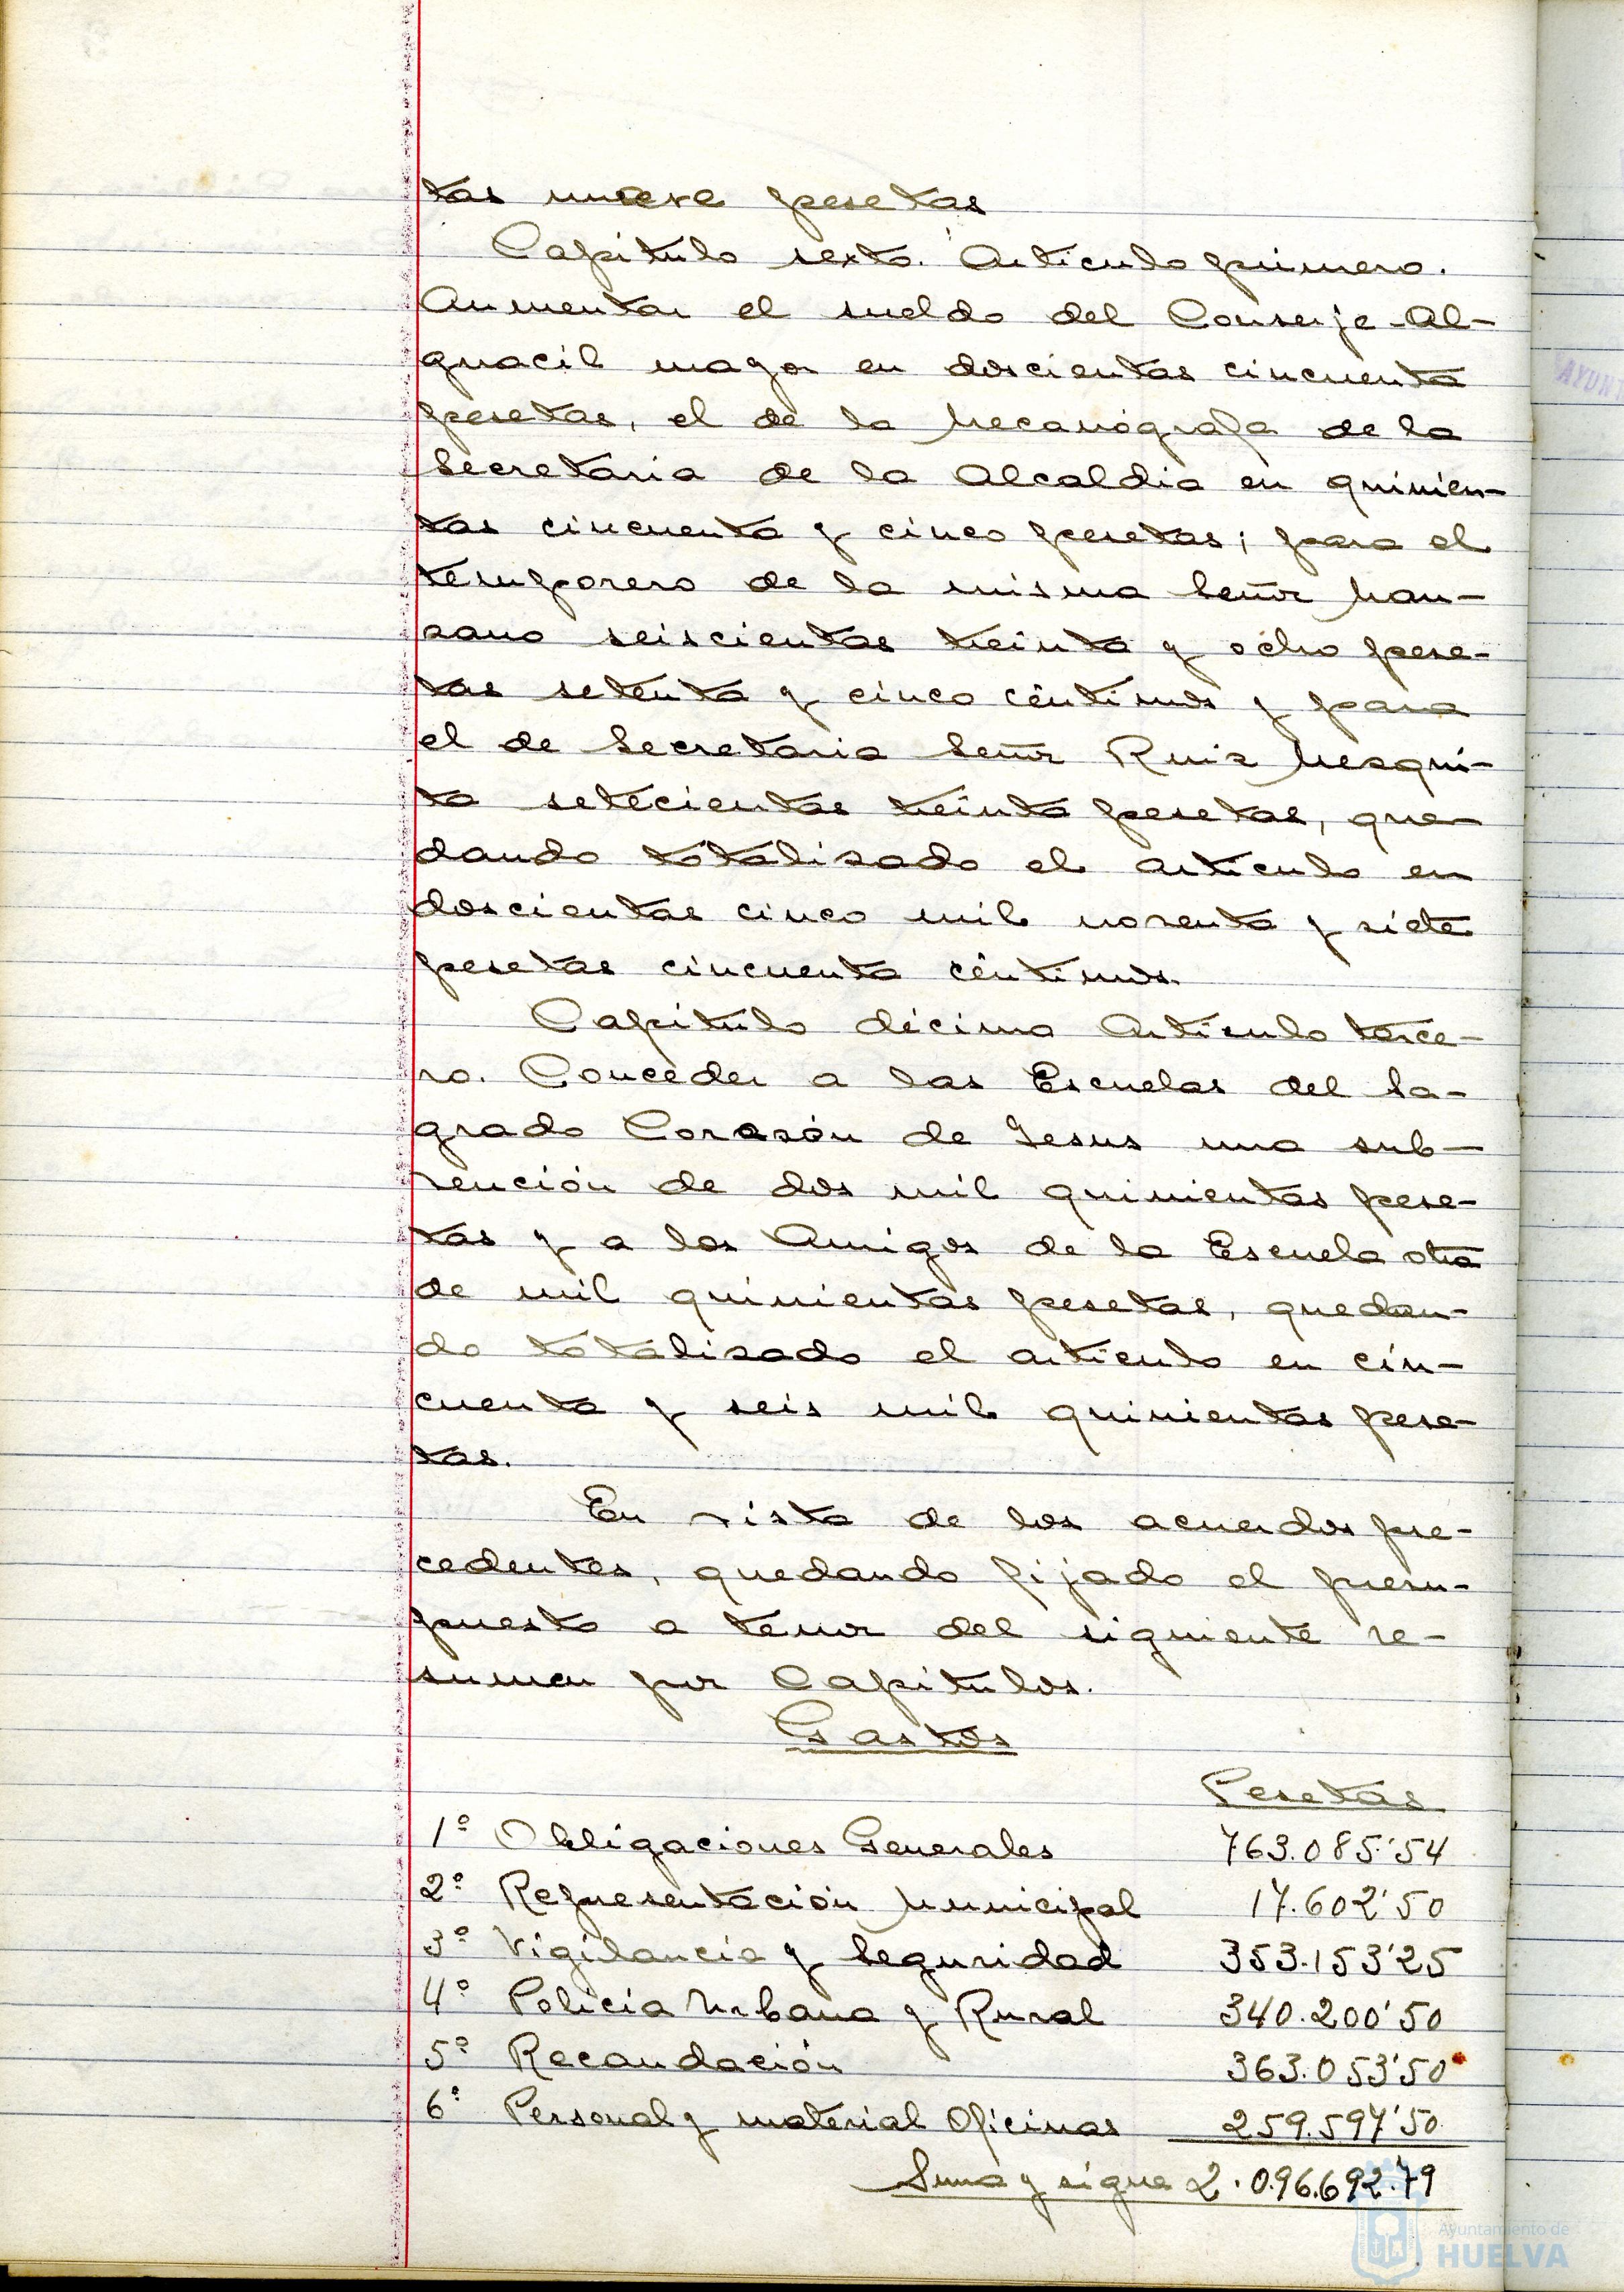 tas nueve pesetas
Capítulo sexto. Artículo primero.
Aumentar el sueldo del Conserje-Al-
guacil mayor en doscientas cincuenta
pesetas, el de la Mecanógrafa de la
Secretaria de la Alcaldia en quinien-
tas cincuenta y cinco pesetas; para el
temporero de la misma Señor Man-
zano seiscientas treinta y ocho pese-
tas setenta y cinco céntimos y para
el de Secretaria Señor Ruiz Mezqui-
ta setecientas treinta pesetas, que-
dando totalizado el artículo en
doscientas cinco mil noventa y siete
pesetas cincuenta céntimos.
Capítulo décimo Artículo terce-
ro. Conceder a las Escuelas del Sa-
grado Corazón de Jesus una sub-
vención de dos mil quinientas pese-
tas y a los Amigos de la Escuela otra
de mil quinientas pesetas, quedan-
do totalizado el artículo en cin-
cuenta y seis mil quinientas pese-
tas.
En vista de los acuerdos pre-
cedentes, quedando fijado el presu-
puesto a tenor del siguiente re-
sumen por Capítulos.
Gastos
Pesetas
1º Obligaciones Generales 763.085'54
2º Representación Municipal 17.602'50
3º Vigilancia y Seguridad 353.153'25
4º Policía Urbana y Rural 340.200'50
5º Recaudación 363.053'50
6º Personal y material Oficinas 259.597'50
Suma y sigue 2.096.692.79
AYUN
Ayuntamiento de
HUELVA